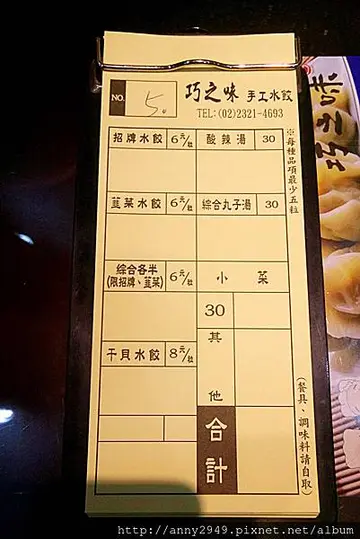 NO. 5.
巧之味 手工水餃
TEL:(02)2321-4693
招牌水餃 6元/粒 酸辣湯 30
韮菜水餃 6元/粒 綜合丸子湯 30
綜合各半 6元/粒 小菜
(限招牌、韮菜)
30
干貝水餃 8元/粒 其他
合計
※每種品項最少五粒
(餐具、調味料請自取)
巧之味
http://anny2949.pixnet.net/album